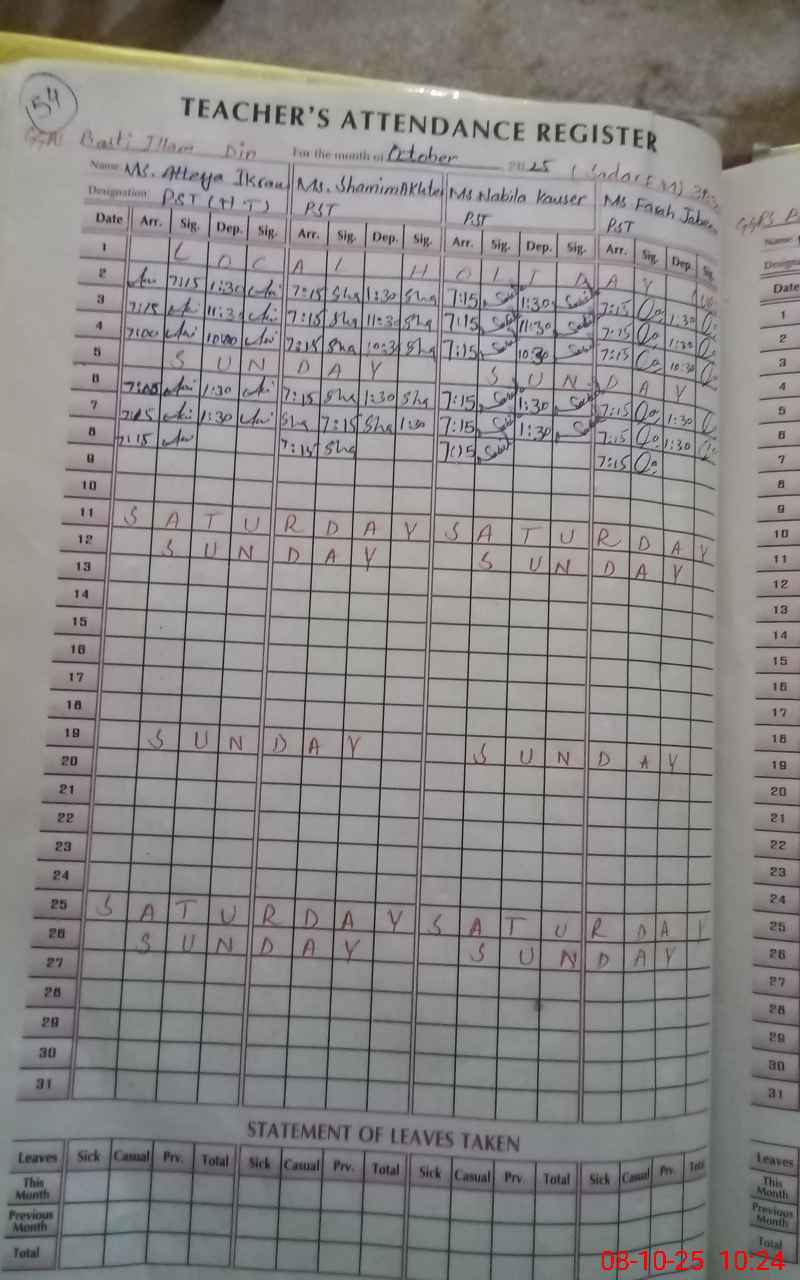 54
TEACHER'S ATTENDANCE REGISTER
Basti Illam Din For the month of October 2025
Name Ms. Atteya Ikram Ms. Shamim Akhter Ms Nabila Kauser Ms Farah
Designation PST (H.T) PST PST PST
Date Arr. Sig. Dep. Sig. Arr. Sig. Dep. Sig. Arr. Sig. Dep. Sig. Arr. Sig. Dep. Sig.
1 L O C A L H O L I D A Y
2 7:15 1:30 7:15 Sha 1:30 Sha 7:15 1:30 7:15 1:30
3 7:15 11:30 7:15 Sha 11:30 Sha 7:15 11:30 7:15
4 7:00 10:00 7:15 Sha 10:30 Sha 7:15 10:30 7:15 10:30
5 S U N D A Y S U N D A Y
6 7:00 1:30 7:15 Sha 1:30 Sha 7:15 1:30 7:15 1:30
7 7:15 1:30 Sha 7:15 Sha 1:30 7:15 1:30 7:15 1:30
8 7:15 7:15 Sha 7:15 7:15
9
10
11 S A T U R D A Y S A T U R D A Y
12 S U N D A Y S U N D A Y
13
14
15
16
17
18
19 S U N D A Y S U N D A Y
20
21
22
23
24
25 S A T U R D A Y S A T U R D A Y
26 S U N D A Y S U N D A Y
27
28
29
30
31
STATEMENT OF LEAVES TAKEN
Leaves Sick Casual Prv. Total Sick Casual Prv. Total Sick Casual Prv. Total Sick Casual Prv. Total
This Month
Previous Month
Total
Name
Date
1
2
3
4
5
6
7
8
9
10
11
12
13
14
15
16
17
18
19
20
21
22
23
24
25
26
27
28
29
30
31
Leaves
This Month
Previous Month
Total
08-10-25 10:24